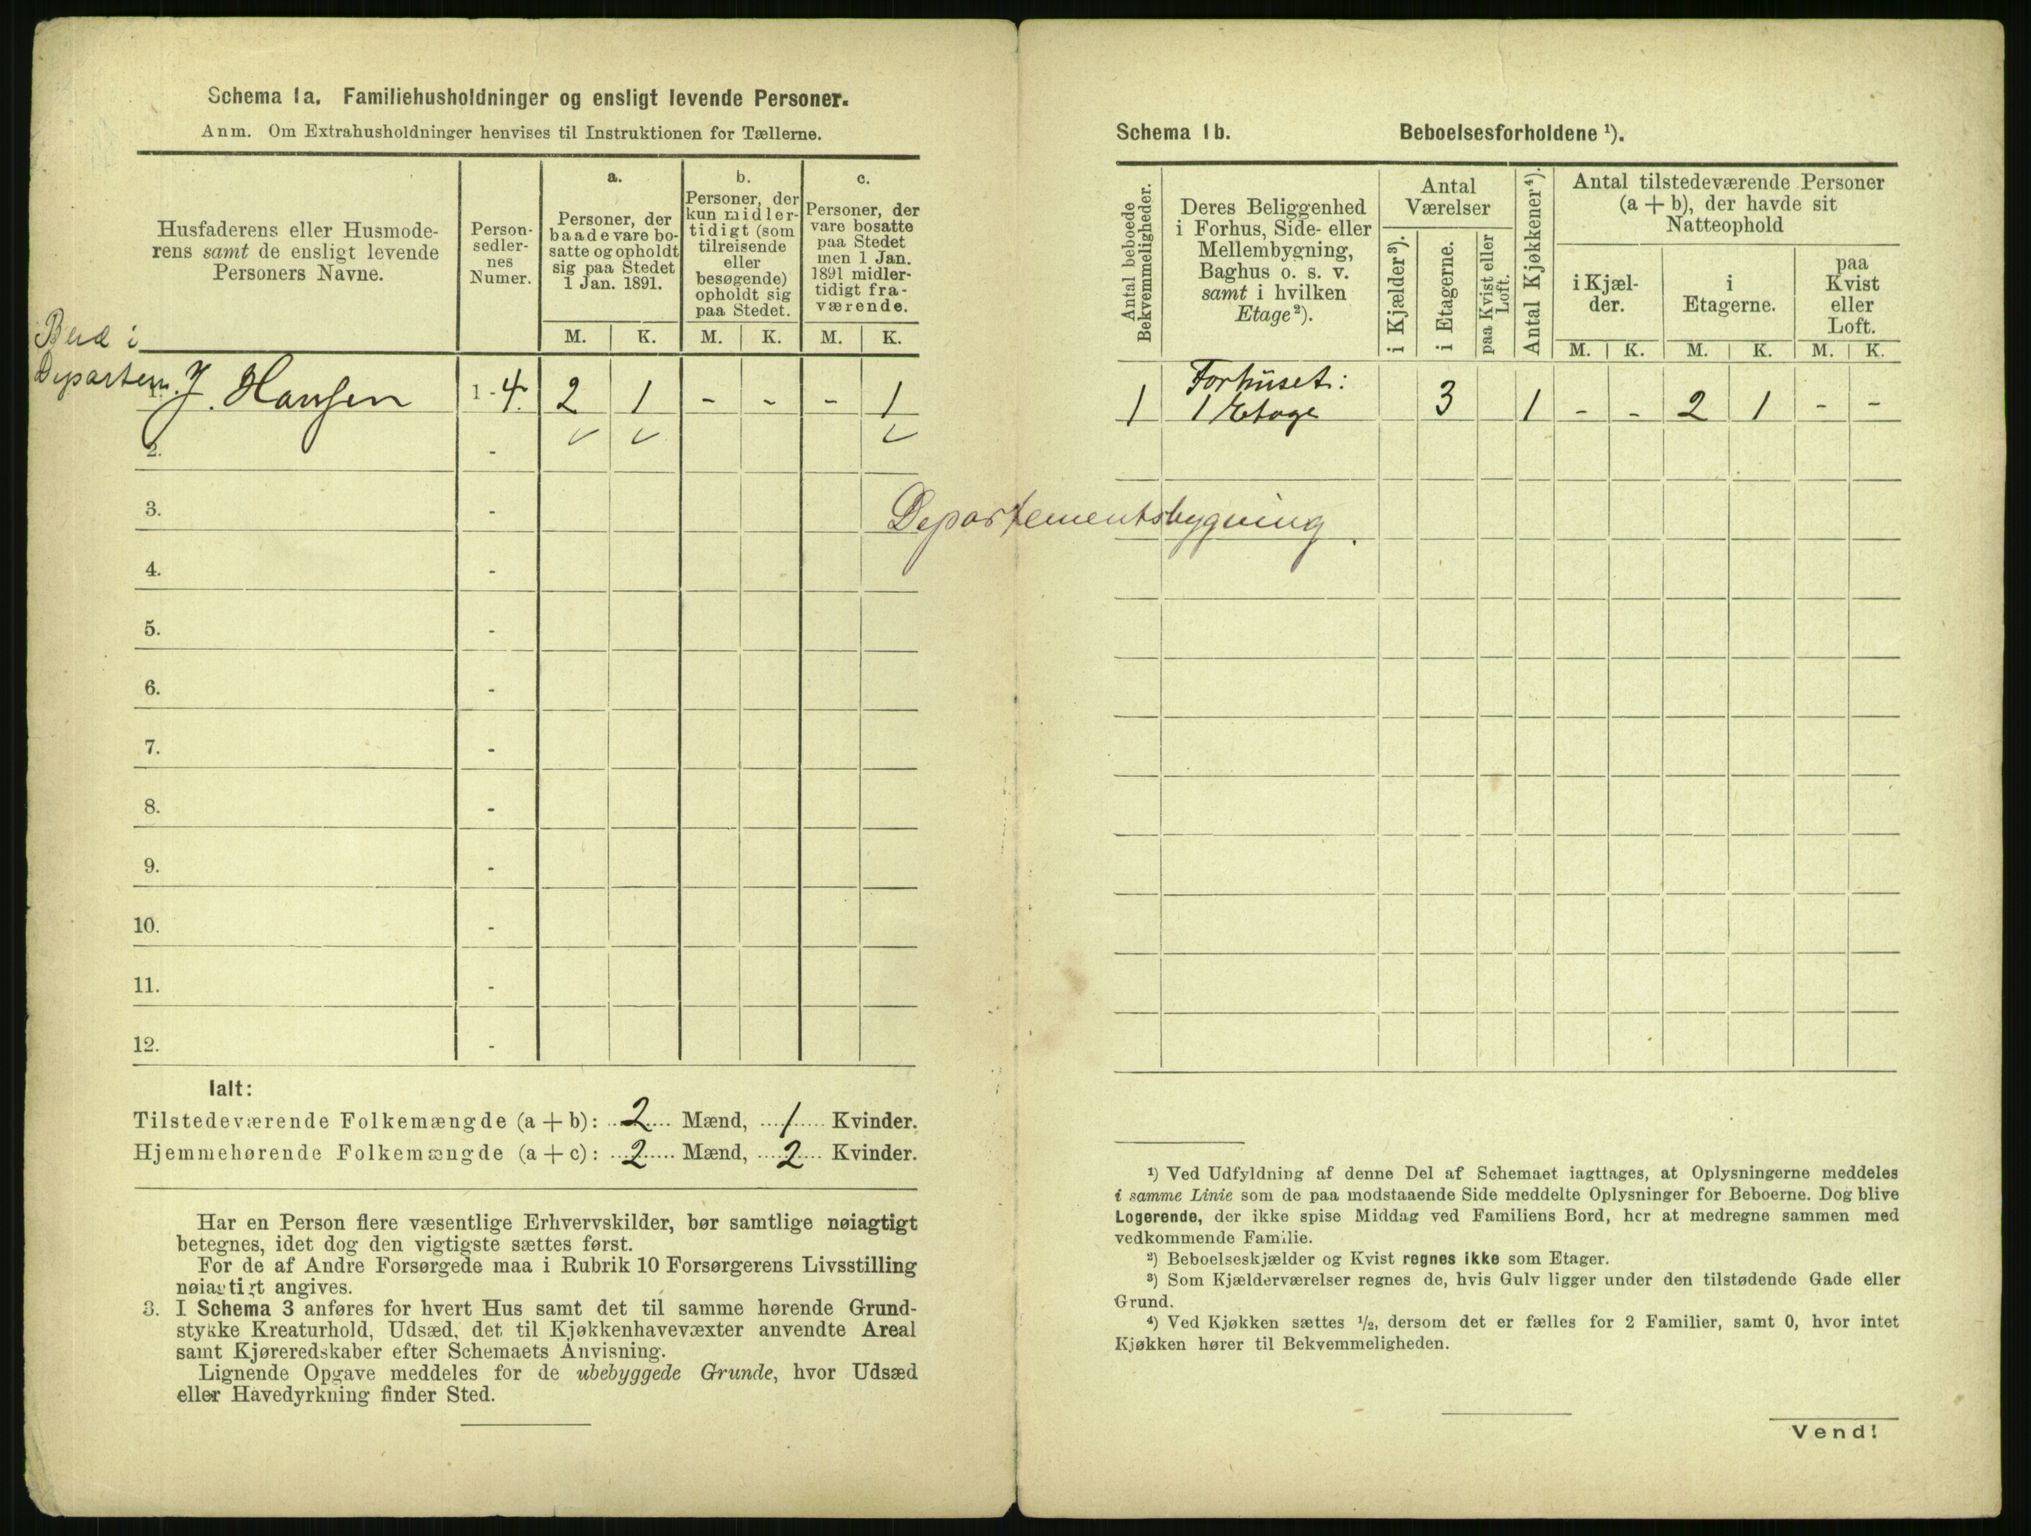 Schema 1a. Familiehusholdninger og ensligt levende Personer.
Anm. Om Extrahusholdninger henvises til Instruktionen for Tællerne.
Husfaderens eller Husmode-
rens samt de ensligt levende
Personers Navne.
Person-
sedler-
nes
Numer.
a.
Personer, der
baade vare bo-
satte og opholdt
sig paa Stedet
1 Jan. 1891.
b.
Personer, der
kun midler-
tidigt (som
tilreisende
eller
besøgende)
opholdt sig
paa Stedet.
c.
Personer, der
vare bosatte
paa Stedet
men 1 Jan.
1891 midler-
tidigt fra-
værende.
M. K. M. K. M. K.
Bud i
Departem.
1. J. Hansen 1 - 4. 2 1 - - - 1
2. -
3. -
4. -
5. -
6. -
7. -
8. -
9. -
10. -
11. -
12. -
Ialt:
Tilstedeværende Folkemængde (a + b): 2 Mænd, 1 Kvinder.
Hjemmehørende Folkemængde (a + c): 2 Mænd, 2 Kvinder.
Har en Person flere væsentlige Erhvervskilder, bør samtlige nøiagtigt
betegnes, idet dog den vigtigste sættes først.
For de af Andre Forsørgede maa i Rubrik 10 Forsørgerens Livsstilling
nøiagtigt angives.
3. I Schema 3 anføres for hvert Hus samt det til samme hørende Grund-
stykke Kreaturhold, Udsæd, det til Kjøkkenhavevæxter anvendte Areal
samt Kjøreredskaber efter Schemaets Anvisning.
Lignende Opgave meddeles for de ubebyggede Grunde, hvor Udsæd
eller Havedyrkning finder Sted.
Schema 1b. Beboelsesforholdene ¹).
Antal beboede
Bekvemmeligheder.
Deres Beliggenhed
i Forhus, Side- eller
Mellembygning,
Baghus o. s. v.
samt i hvilken
Etage²).
Antal
Værelser
i Kjælder³).
i Etagerne.
paa Kvist eller
Loft.
Antal Kjøkkener⁴).
Antal tilstedeværende Personer
(a + b), der havde sit
Natteophold
i Kjæl-
der.
i
Etagerne.
paa
Kvist
eller
Loft.
M. K. M. K. M. K.
Forhuset:
1 1 Etage 3 1 - - 2 1 - -
Departementsbygning.
¹) Ved Udfyldning af denne Del af Schemaet iagttages, at Oplysningerne meddeles
i samme Linie som de paa modstaaende Side meddelte Oplysninger for Beboerne. Dog blive
Logerende, der ikke spise Middag ved Familiens Bord, her at medregne sammen med
vedkommende Familie.
²) Beboelseskjælder og Kvist regnes ikke som Etager.
³) Som Kjælderværelser regnes de, hvis Gulv ligger under den tilstødende Gade eller
Grund.
⁴) Ved Kjøkken sættes ½, dersom det er fælles for 2 Familier, samt 0, hvor intet
Kjøkken hører til Bekvemmeligheden.
Vend!